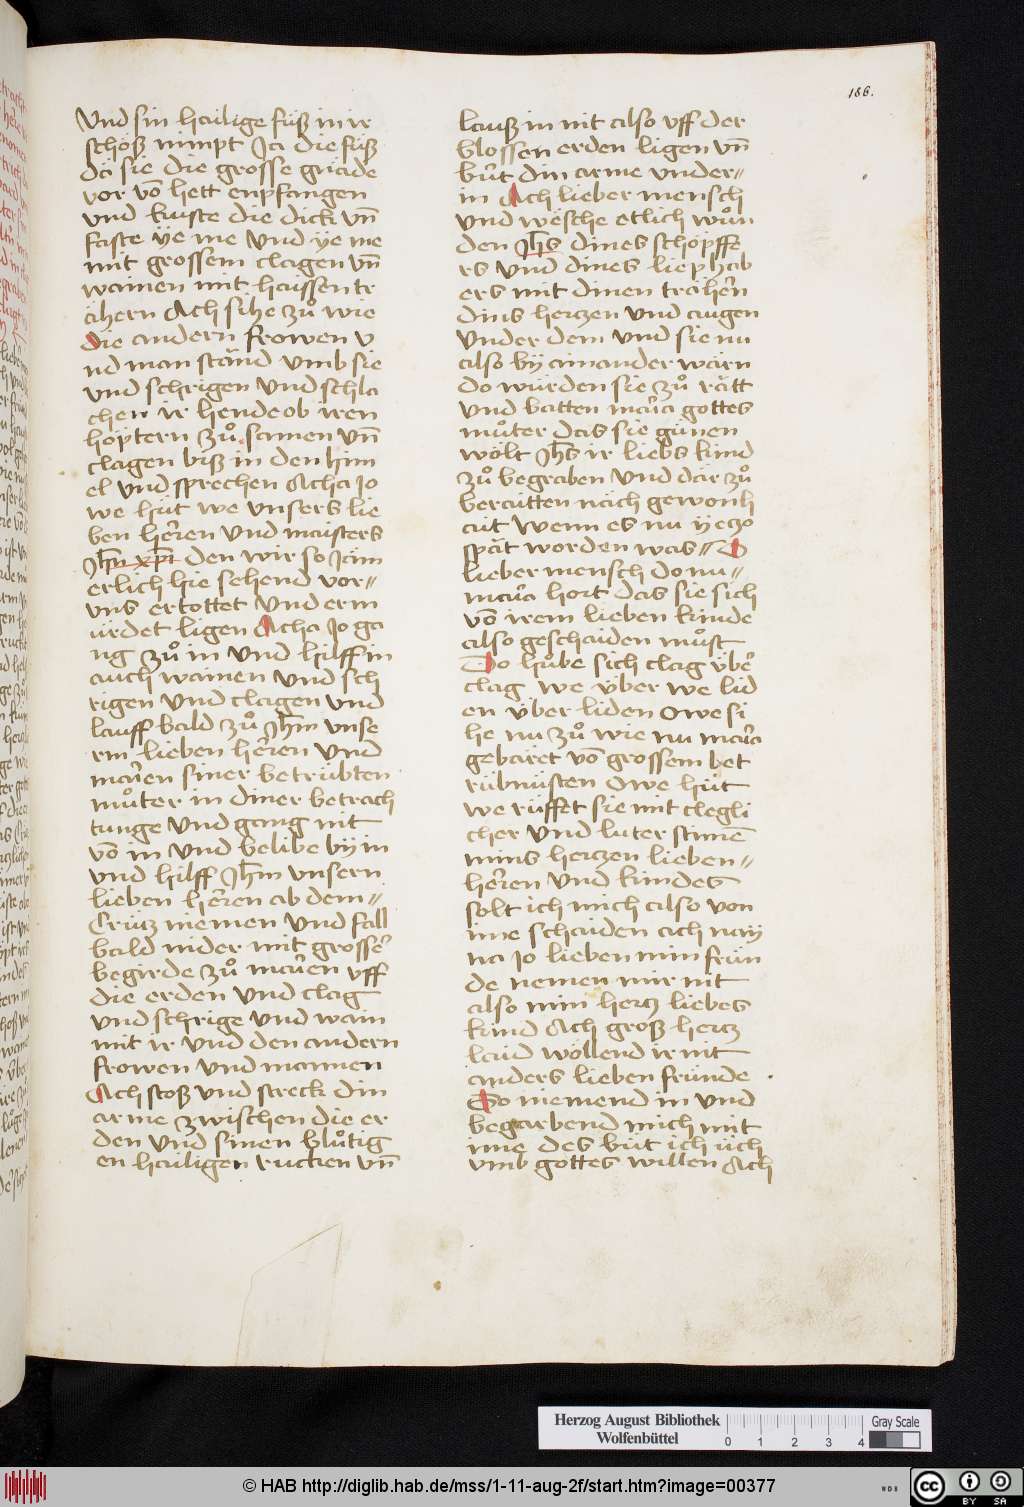 186.
Vnd sin hailige füß in ir
schoß nimpt Ja die füß
da sie die grosse gnade
vor vō hett enpfangen
vnd kuste die dick vn̄
faste ye me vnd ye me
mit grossem clagen vn̄
wainen mit haissen tr
ähern Ach sihe zů wie
die andern frowen v
nd man stānd vmb sie
vnd schrigen vnd schla
chen ir hende ob iren
höptern zů samen vn̄
clagen biß in den him
el vnd sprechen Acha Jo
we hüt we vnsers lie
ben heren vnd maisters
Jhm xpī den wir so Jäm
erlich hie sehend vor〃
vns ertottet vnd erm
ürdet ligen Acha Jo ga
ng zů in vnd hilff in
auch wainen vnd sch
rigen vnd clagen vnd
lauff bald zů Jhm vnse
rm lieben heren vnd
marien siner betrübten
můter in diner betrach
tunge vnd gang nit
vō in vnd belibe by in
vnd hilff Jhm vnsern
lieben heren ab dem〃
Crütz niemen vnd fall
bald nider mit grosser
begirde zů marien vff
die erden vnd clag
vnd schrige vnd wain
mit ir vnd den andern
frowen vnd mannen
Ach stoß vnd streck din
arme zwischen die er
den vnd sinen blůtig
en hailigen rucken vn̄
lauß in nit also vff der
blossen erden ligen vn̄
büt din arme vnder〃
in Ach lieber mensch
vnd wesche etlich wůn
den Jhs dines schöpffe
rs vnd dines liephab
ers mit dinen trähern
dins hertzen vnd augen
Vnder dem vnd sie nu
also by ainander wärn
do würden sie zů rätt
vnd batten maria gottes
můter das sie günen
wölt Jhs ir liebs kind
zů begraben vnd där zů
beraitten näch gewonh
ait wenn es nu yetzo
spät worden was〃 O
lieber mensch do nu〃
maria hort das sie sich
vō irem lieben kinde
also geschaiden můst
Do hůbe sich clag über
clag we über we lid
en über liden Owe si
he nu zů wie nu maria
gebäret vō grossem bet
rübnüsten Owe hüt
we rüffet sie mit clegli
cher vnd luter stimē
mins hertzen lieben〃
heren vnd kindes
solt ich mich also von
ime schaiden ach nay
na Jo lieben min frün
de nemen mir nit
also min hertz liebes
kind Ach groß hertz
laid wöllend ir nit
anders lieben fründe
So niemend in vnd
begrabend mich mit
ime des büt ich üch
vmb gottes willen Ach
Herzog August Bibliothek
Wolfenbüttel
Gray Scale
0 1 2 3 4
© HAB http://diglib.hab.de/mss/1-11-aug-2f/start.htm?image=00377
WDB
cc BY SA